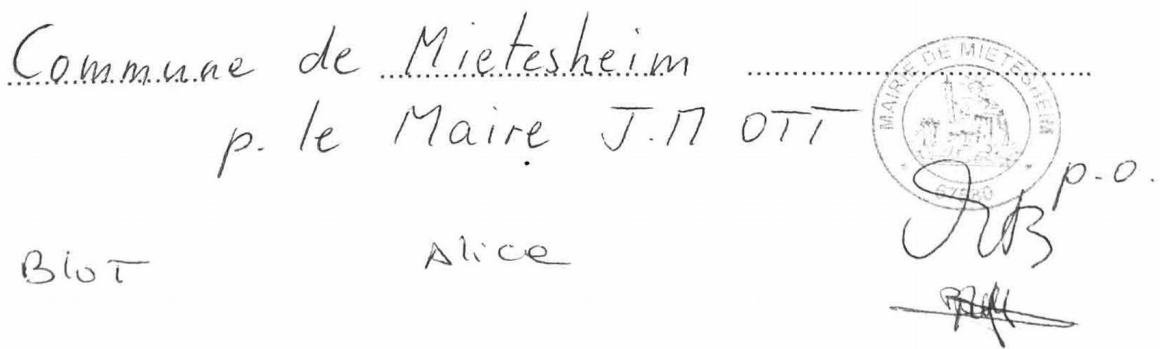 Commune de Mietesheim
p. le Maire J.M OTT
MAIRIE DE MIETESHEIM
67580
p.o.
BLOT Alice